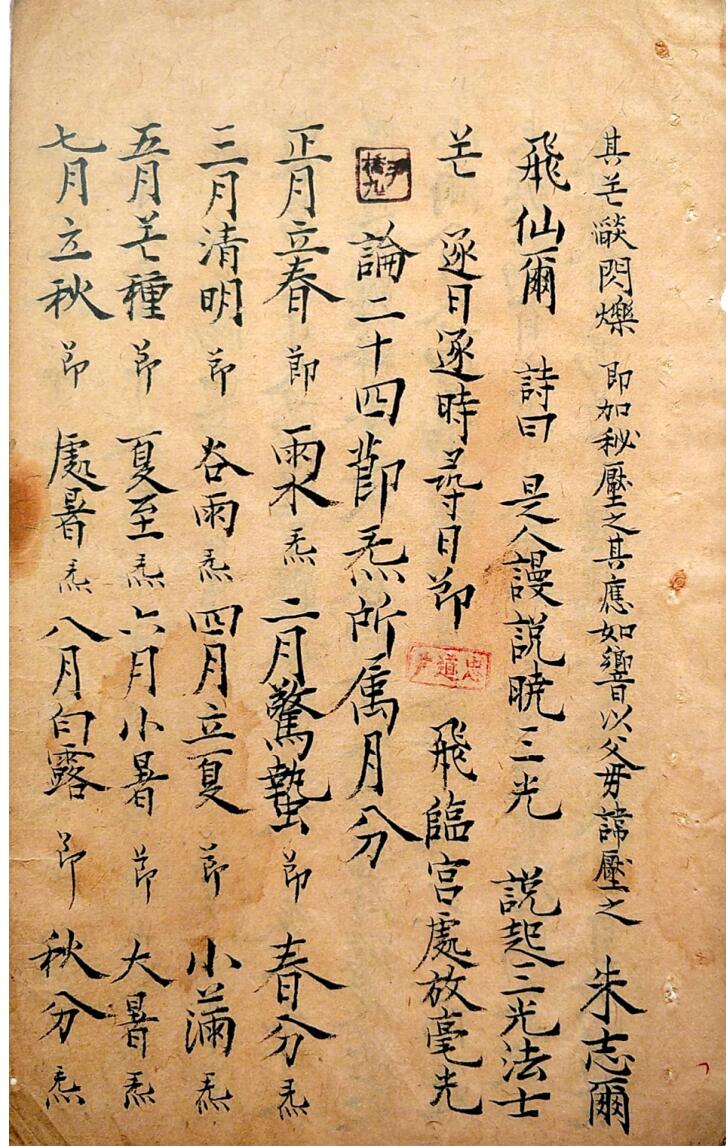 其芒燄閃爍 即加秘壓之其應如響以父母諱壓之 朱志爾
飛仙爾 詩曰 是人謾説曉三光 説起三光法士
芒 逐日逐時尋日節 飛臨宮處放毫光
論二十四節炁所属月分
正月立春 節 雨水 炁 二月驚蟄 節 春分 炁
三月清明 節 谷雨 炁 四月立夏 節 小滿 炁
五月芒種 節 夏至 炁 六月小暑 節 大暑 炁
七月立秋 節 處暑 炁 八月白露 節 秋分 炁